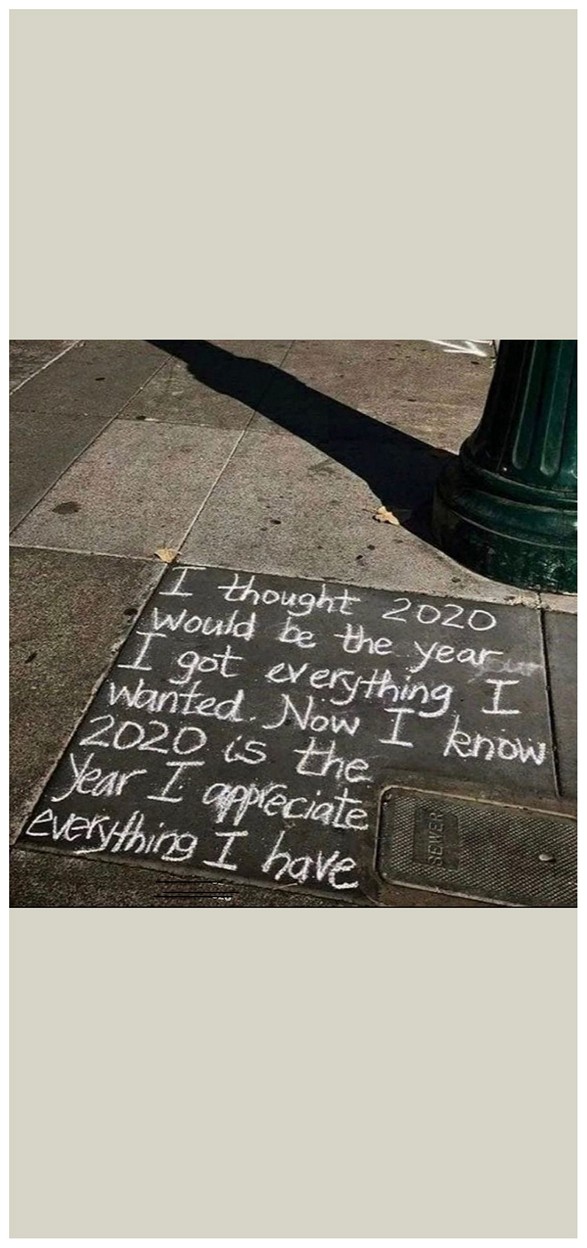 I thought 2020
would be the year
I got everything I
wanted. Now I know
2020 is the
year I appreciate
everything I have
SEWER